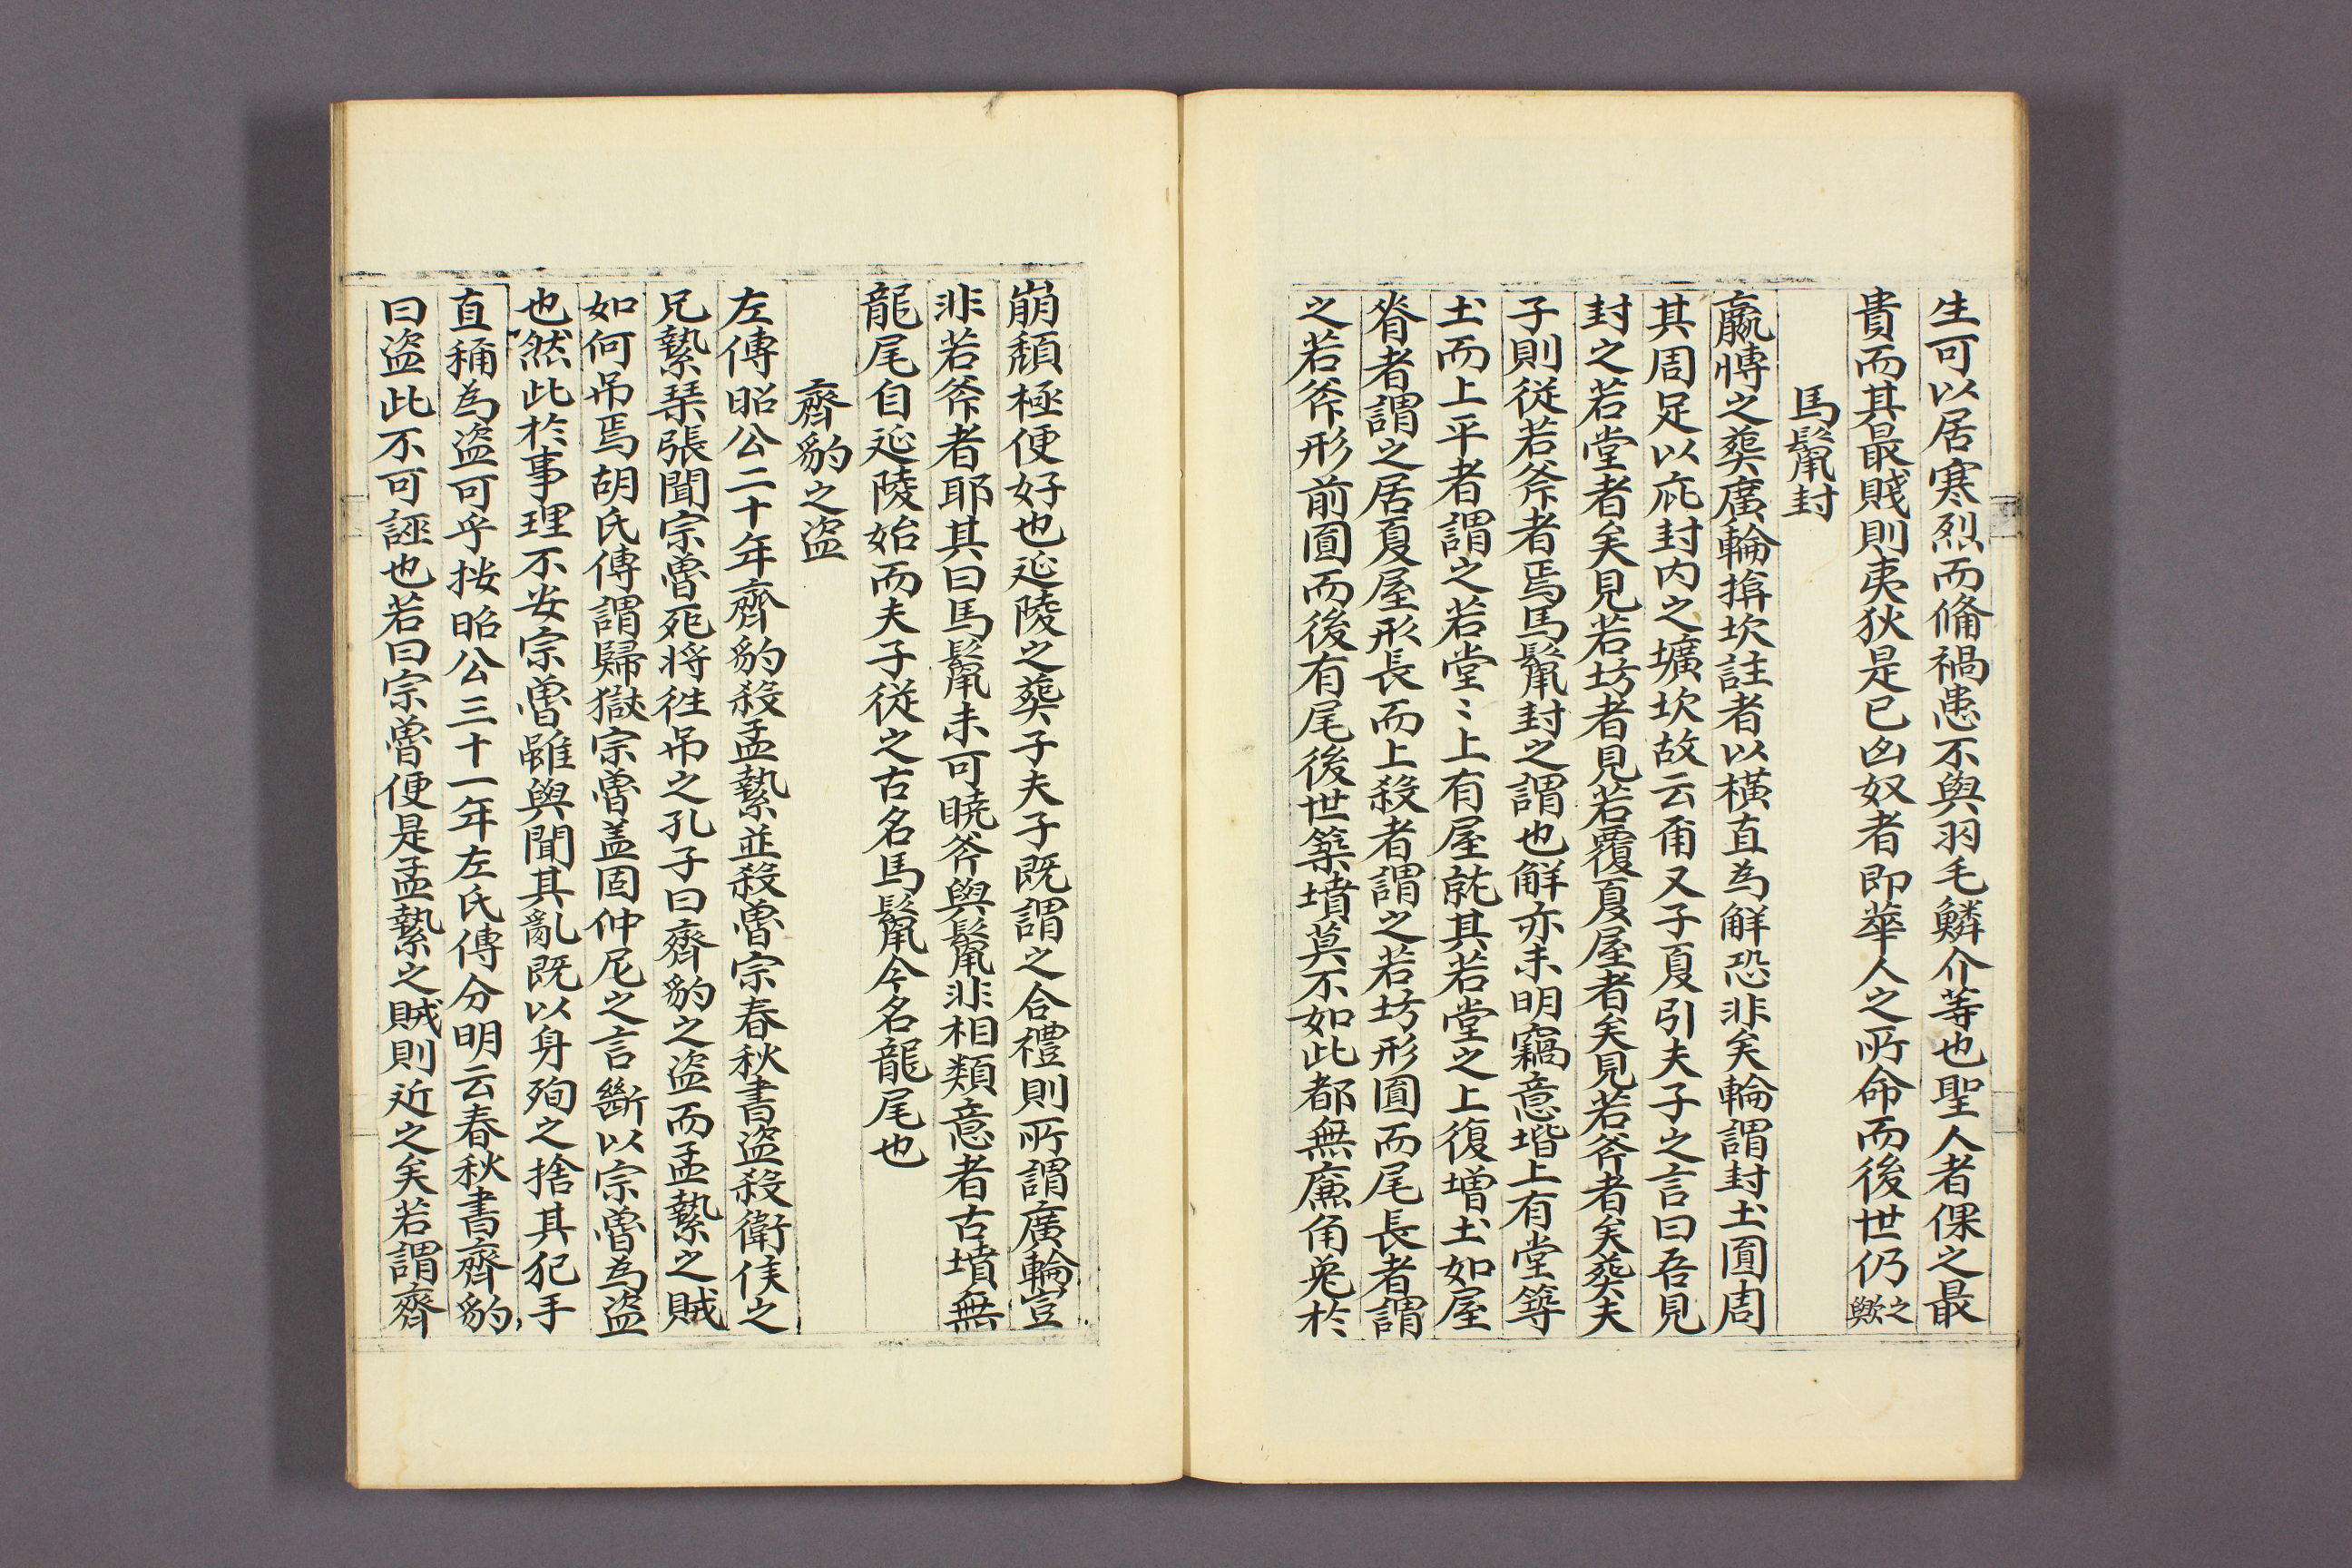 生可以居寒烈而俻禍患不與羽毛鱗介等也聖人者倮之最
貴而其最賤則夷狄是已凶奴者即華人之所命而後世仍之歟
馬鬛封
嬴博之葬廣輪揜坎註者以橫直為觧恐非矣輪謂封圡圎周
其周足以庇封内之壙坎故云甬又子夏引夫子之言曰吾見
封之若堂者矣見若坊者見若覆夏屋者矣見若斧者矣葬夫
子則從若斧者焉馬鬛封之謂也觧亦未明竊意堦上有堂等
圡而上平者謂之若堂〻上有屋就其若堂之上復增圡如屋
脊者謂之居夏屋形長而上殺者謂之若坊形圎而尾長者謂
之若斧形前圎而後有尾後世築墳莫不如此都無廉角免於
崩頹極便好也延陵之葬子夫子既謂之合禮則所謂廣輪豈
非若斧者耶其曰馬鬛未可曉斧與鬛非相類意者古墳無
龍尾自延陵始而夫子從之古名馬鬛今名龍尾也
齊豹之盗
左傳昭公二十年齊豹殺孟縶並殺魯宗春秋書盗殺衛侯之
兄縶琹張聞宗魯死将徃吊之孔子曰齊豹之盗而孟縶之賊
如何吊焉胡氏傳謂歸獄宗魯盖因仲尼之言斷以宗魯為盗
也然此於事理不安宗魯雖與聞其亂既以身殉之捨其犯手
直稱為盗可乎按昭公三十一年左氏傳分明云春秋書齊豹
曰盗此不可誣也若曰宗魯便是孟縶之賊則近之矣若謂齊